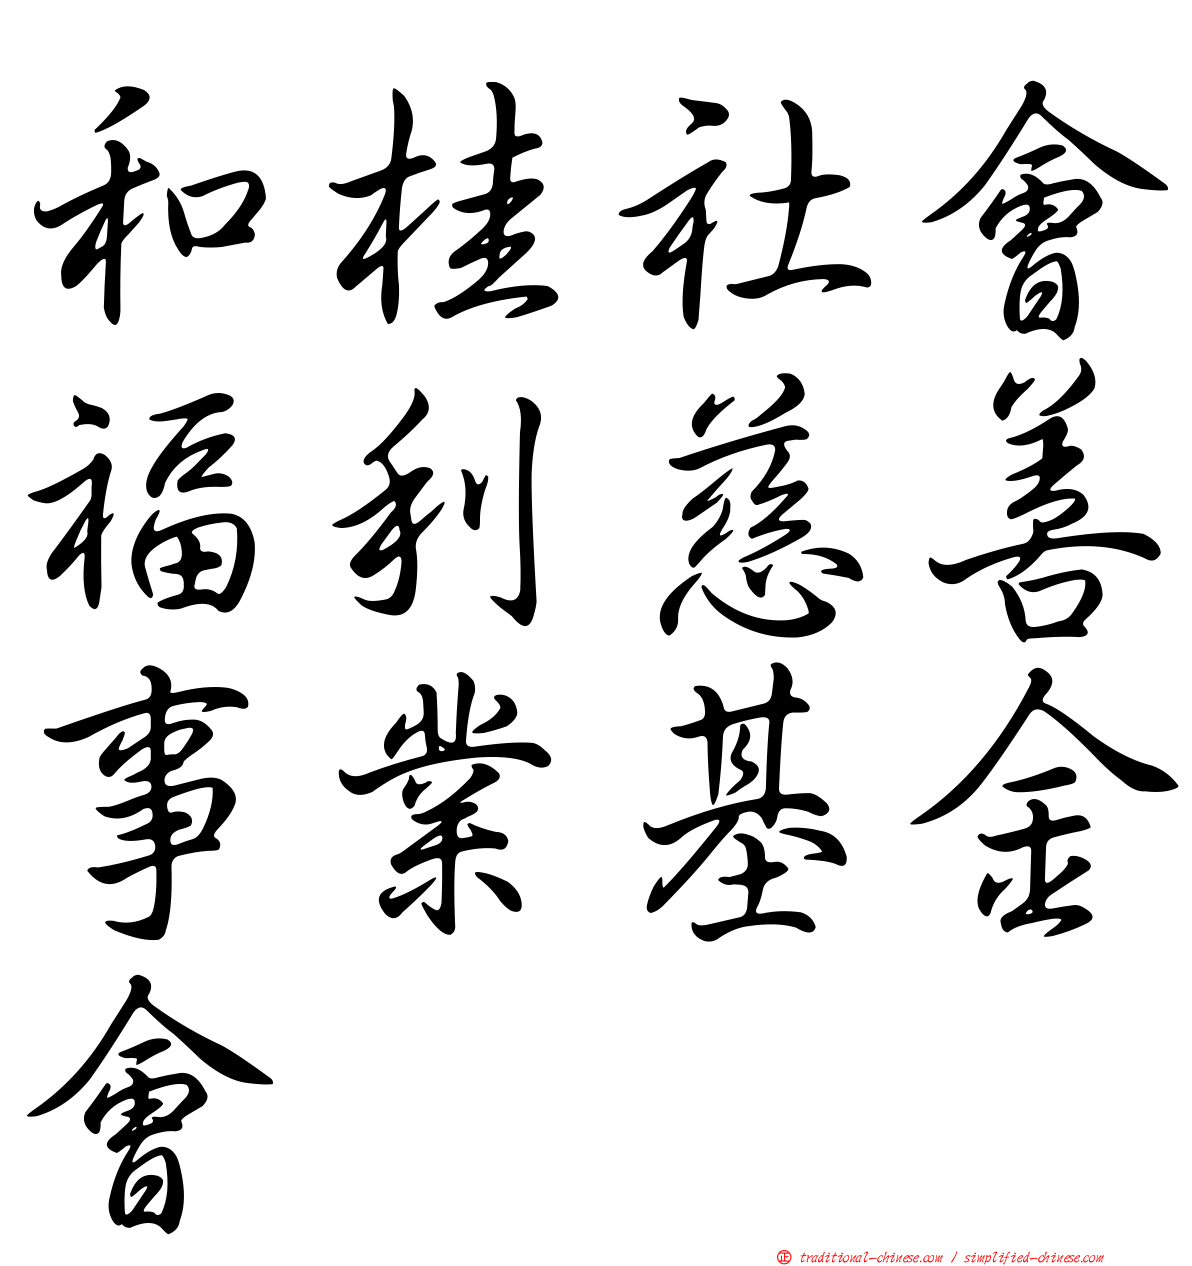 和桂社會
福利慈善
事業基金
會
正 traditional-chinese.com / simplified-chinese.com